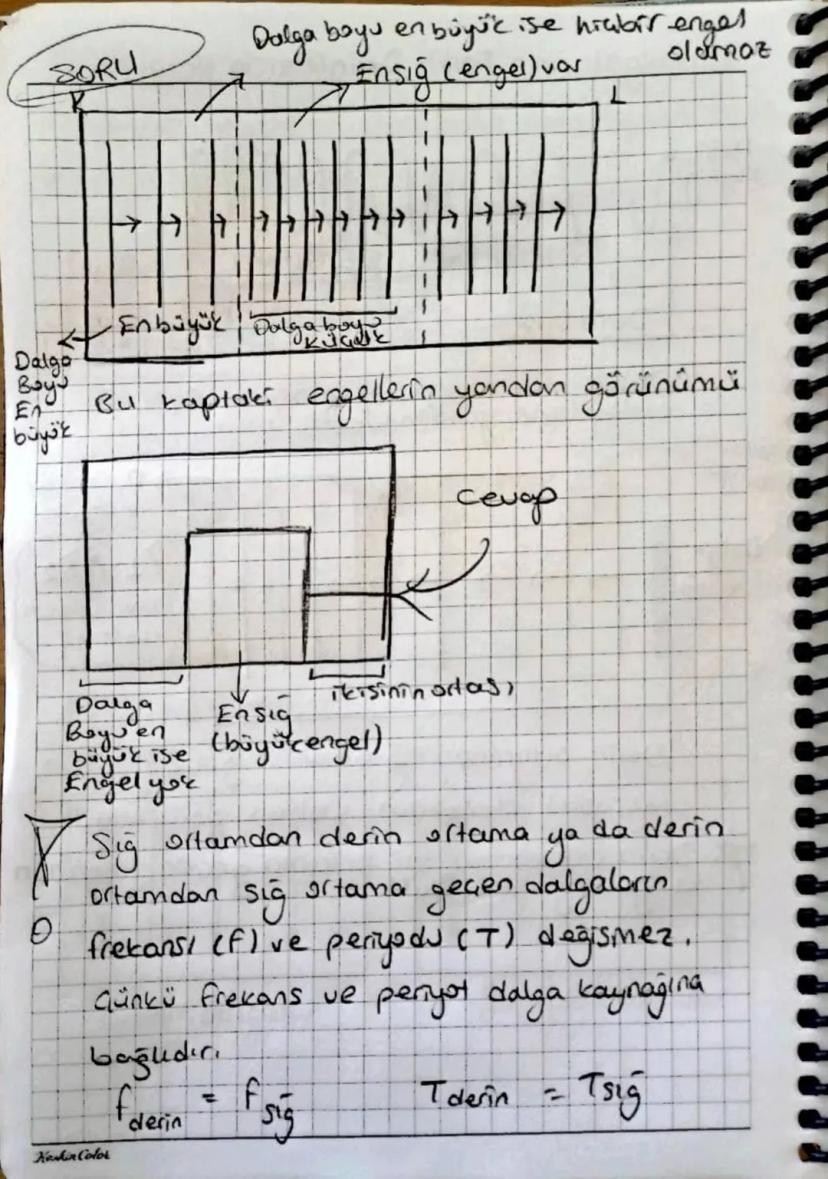 SORU
Dalga boyu en büyük ise hiçbir engel
olamaz
Ensığ (engel) var
K
L
En büyük
Dalga boyu
küçük
Dalga
Boyu
En
büyük
Bu kaptaki engellerin yandan görünümü
Cevap
ikisinin ortası
Dalga
Boyu en
büyük ise
Engel yok
En sığ
(büyük engel)
Sığ ortamdan derin ortama ya da derin
ortamdan sığ ortama geçen dalgaların
frekansı (f) ve periyodu (T) değişmez.
Çünkü frekans ve periyot dalga kaynağına
bağlıdır.
f derin = f sığ
T derin = T sığ
Keskin Color